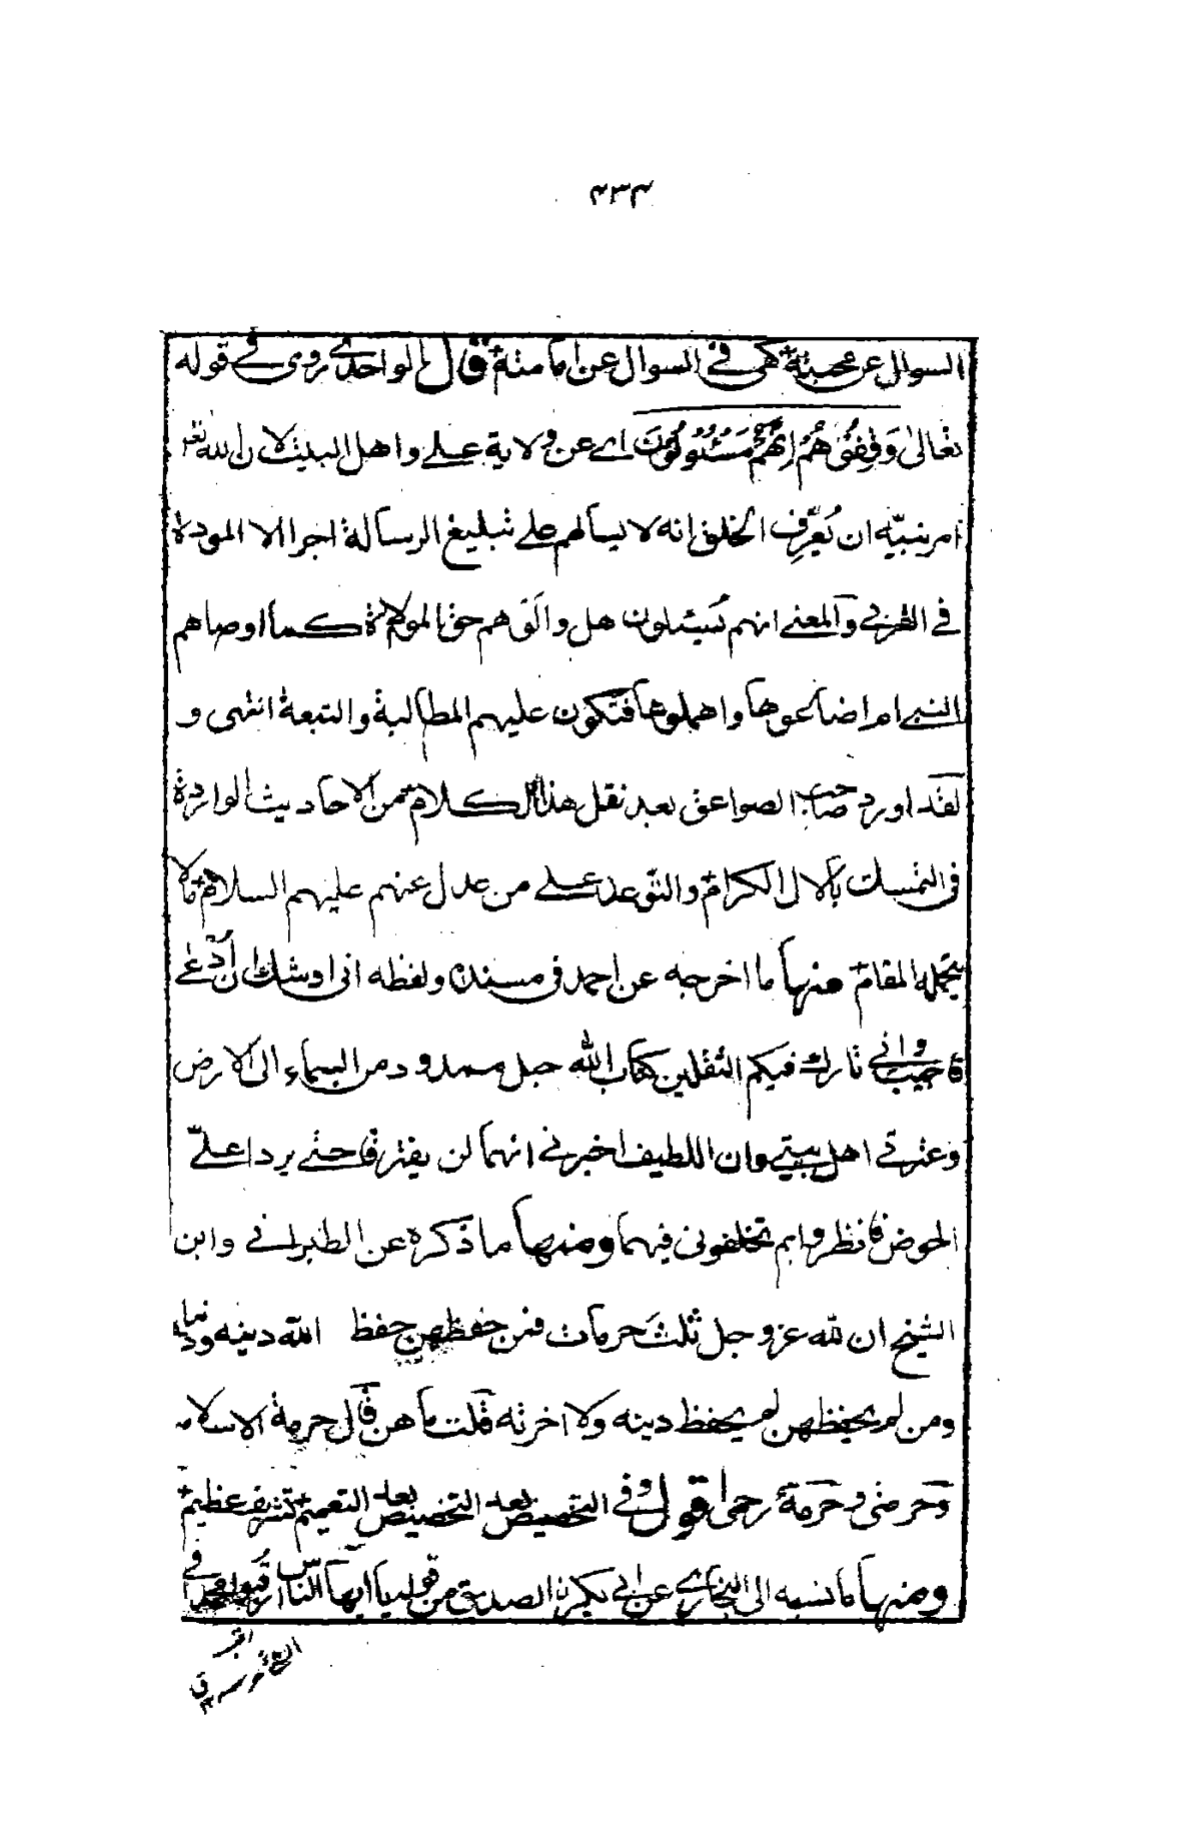 ۴۳۴
السوال عن محبته كهى فى السوال عن امامته قال الواحدى روى فى قوله
تعالى وَقِفُوْهُمْ اِنَّهُمْ مَسْئُوْلُوْنَ اى عن ولاية على واهل البيت لان الله تعالى
امر نبيّه ان يُعَرِّف الخلق انه لا يسألهم على تبليغ الرسالة اجرا الا المودة
فى القربى والمعنى انهم يُسئلون هل والَوهم حق الموالاة كما اوصاهم
النبى ام اضاعوها واهملوها فتكون عليهم المطالبة والتبعة انتهى و
لقد اورد صاحب الصواعق بعد نقل هذا الكلام من الاحاديث الواردة
فى التمسك بالآل الكرام والتوعد على من عدل عنهم عليهم السلام مالا
يتحمله المقام منها ما اخرجه عن احمد فى مسنده ولفظه انى اوشك ان اُدعى
فاجيب وانى تارك فيكم الثقلين كتاب الله حبل ممدود من السماء الى الارض
وعترتى اهل بيتى وان اللطيف اخبرنى انهما لن يفترقا حتى يردا علىّ
الحوض فانظروا بم تخلفونى فيهما ومنها ما ذكره عن الطبرانى وابن
الشيخ ان لله عز وجل ثلث حرمات فمن حفظهن حفظ الله دينه ودنياه
ومن لم يحفظهن لم يحفظ دينه ولا اخرته قلت ما هن قال حرمة الاسلام
وحرمتى وحرمة رحمى اقول وفى التخصيص بعد التخصيص بعد التعميم تشريف عظيم
ومنها ما نسبه الى البخارى عن ابى بكر الصديق من قوله يا ايها الناس ارقبوا محمدا فى